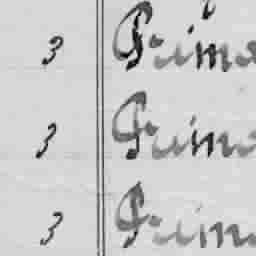 3 Prima
3 Prima
3 Prim